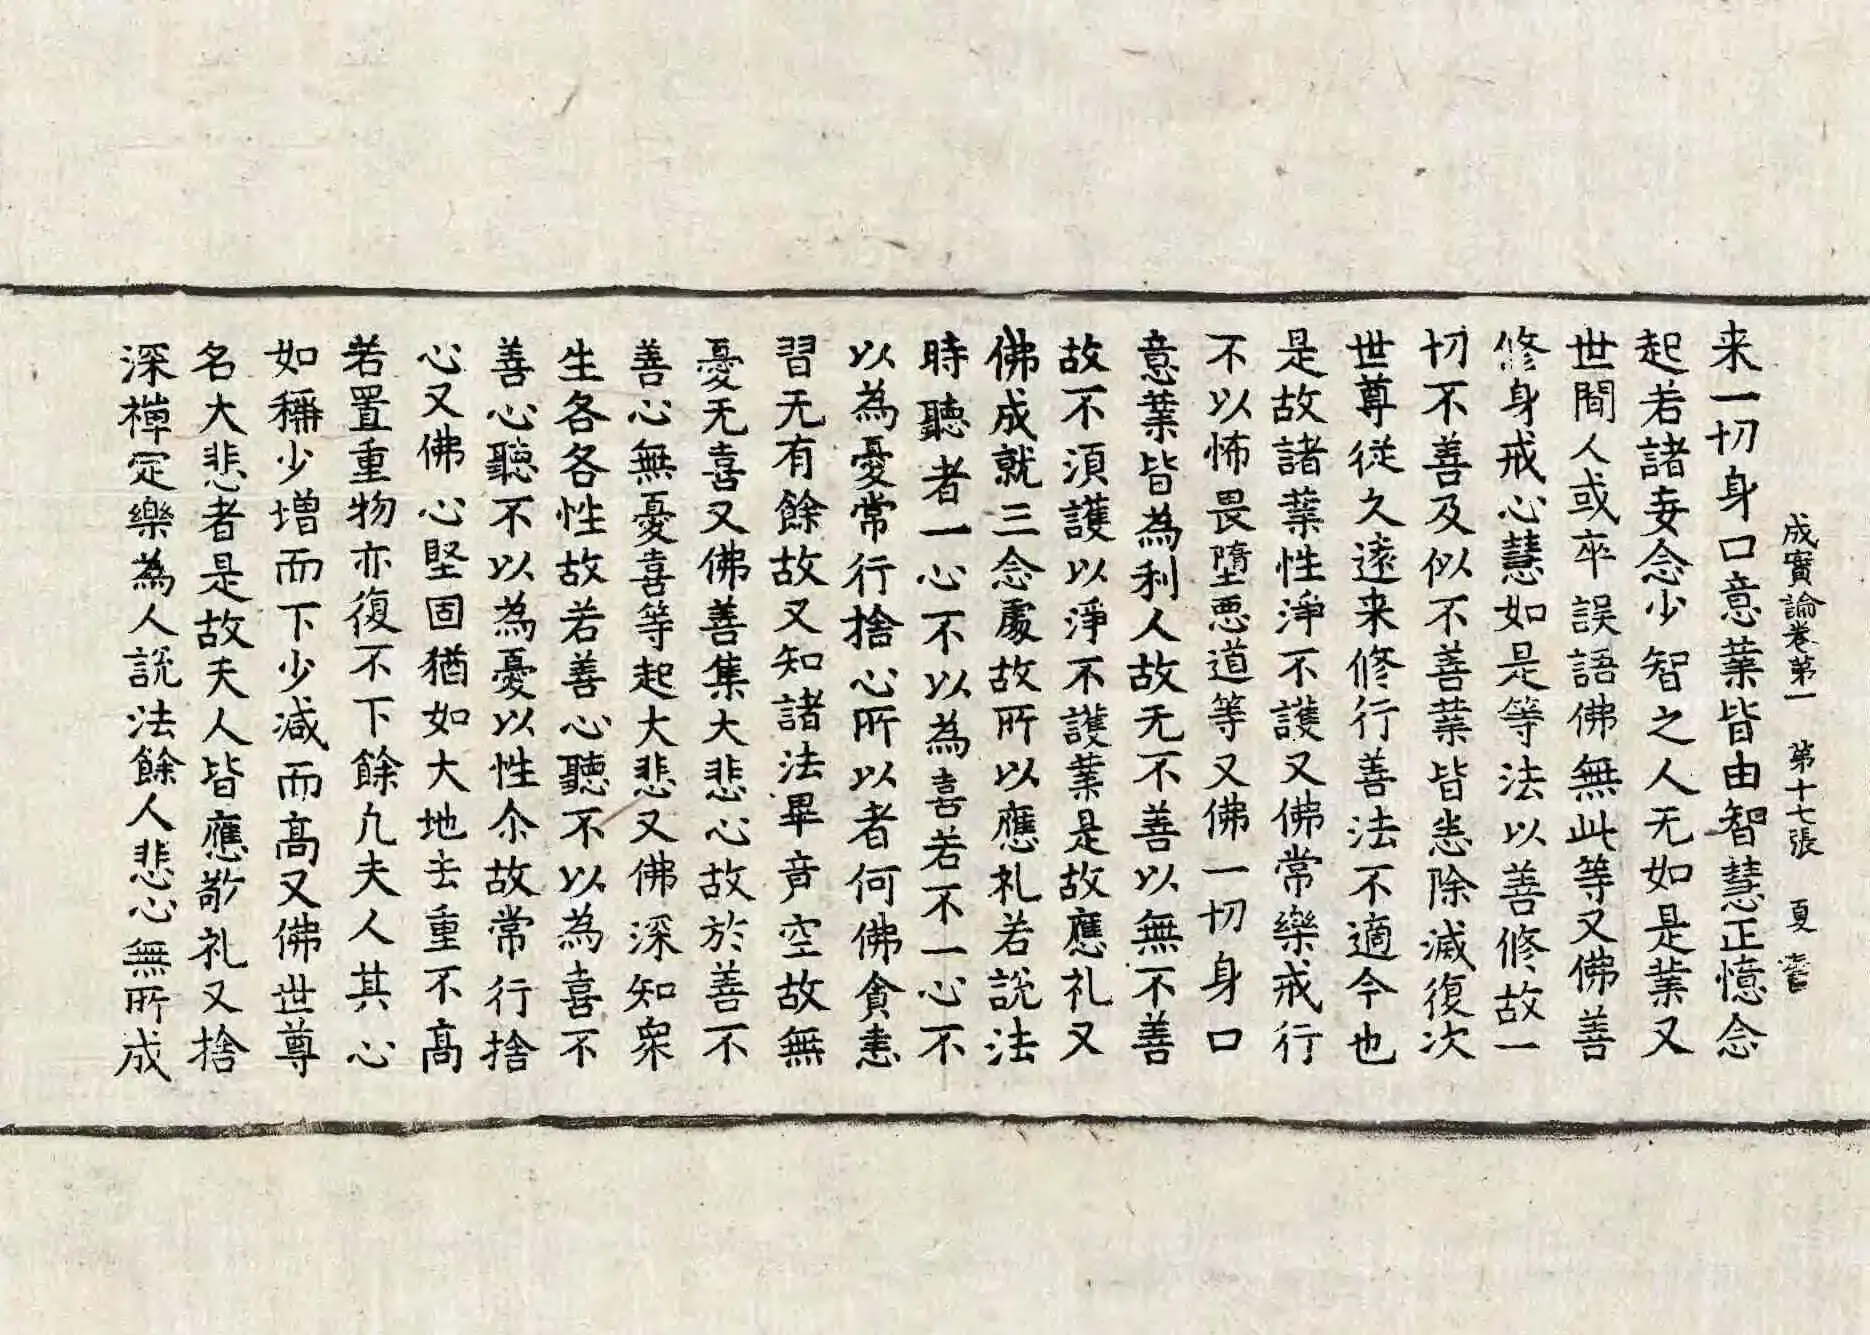 成實論卷第一　第十七張　夏　書
来一切身口意業皆由智慧正憶念
起若諸妄念少智之人无如是業又
世間人或卒誤語佛無此等又佛善
修身戒心慧如是等法以善修故一
切不善及似不善業皆悉除滅復次
世尊従久遠来修行善法不適今也
是故諸業性淨不護又佛常樂戒行
不以怖畏墮悪道等又佛一切身口
意業皆為利人故无不善以無不善
故不須護以淨不護業是故應礼又
佛成就三念處故所以應礼若說法
時聽者一心不以為喜若不一心不
以為憂常行捨心所以者何佛貪恚
習无有餘故又知諸法畢竟空故無
憂无喜又佛善集大悲心故於善不
善心無憂喜等起大悲又佛深知衆
生各各性故若善心聽不以為喜不
善心聽不以為憂以性尒故常行捨
心又佛心堅固猶如大地去重不高
若置重物亦復不下餘凢夫人其心
如稱少增而下少减而高又佛世尊
名大悲者是故夫人皆應敬礼又捨
深禪定樂為人說法餘人悲心無所成